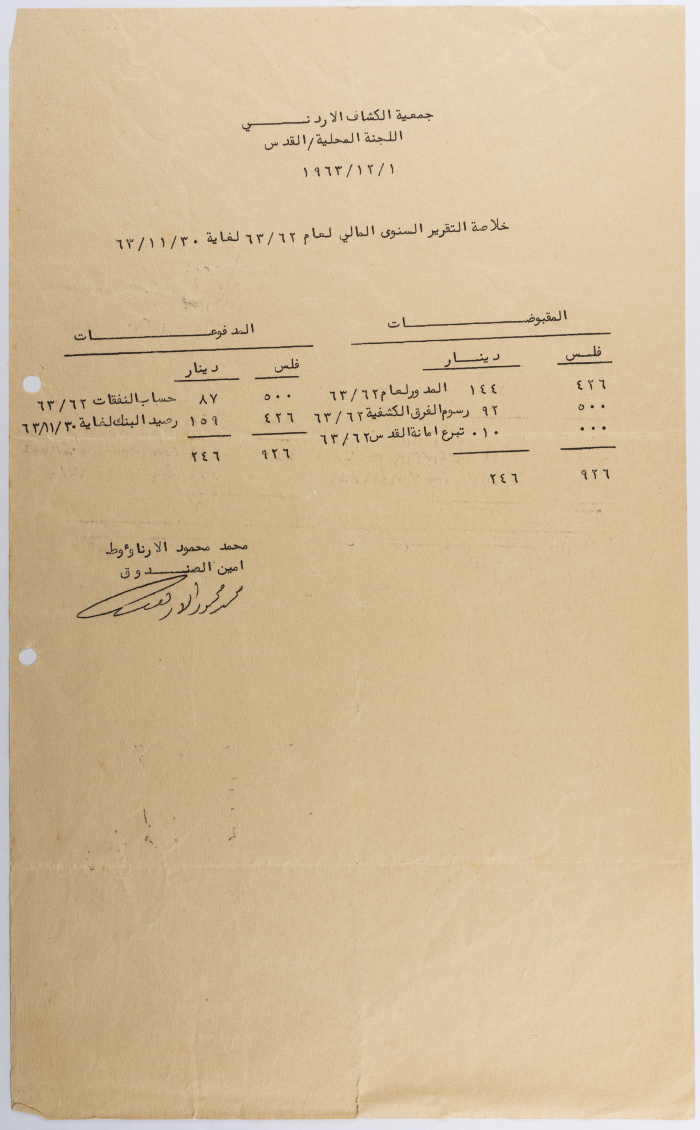 جمعية الكشاف الاردنـــــــي
اللجنة المحلية/القدس
١٩٦٣/١٢/١
خلاصة التقرير السنوى المالي لعام ٦٣/٦٢ لغاية ٦٣/١١/٣٠
المقبوضـــــــــــــات
المدفوعـــــــــــــات
فلـس دينـــار
فلس دينار
٤٢٦ ١٤٤ المدور لعام ٦٣/٦٢
٥٠٠ ٩٢ رسوم الفرق الكشفية ٦٣/٦٢
٠٠٠ ٠١٠ تبرع امانة القدس ٦٣/٦٢
٩٢٦ ٢٤٦
٥٠٠ ٨٧ حساب النفقات ٦٣/٦٢
٤٢٦ ١٥٩ رصيد البنك لغاية ٦٣/١١/٣٠
٩٢٦ ٢٤٦
محمد محمود الارناؤوط
امين الصنـــدوق
محمد محمود الارناؤوط